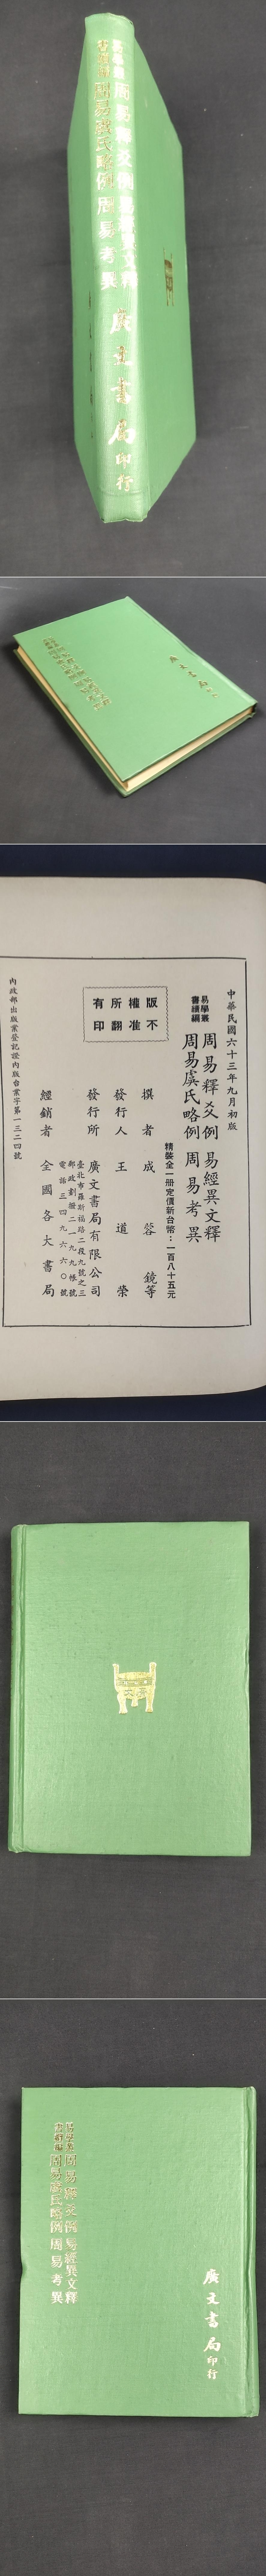 易學叢
書續編
周易釋爻例 易經異文釋
周易虞氏略例 周易考異
廣文書局
印行
中華民國六十三年九月初版
易學叢
書續編
周易釋爻例 易經異文釋
周易虞氏略例 周易考異
精裝全一冊定價新台幣：一百八十五元
版權所有
不准翻印
撰者 成蓉鏡等
發行人 王道榮
發行所 廣文書局有限公司
臺北市羅斯福路二段九號之三
郵政劃撥二九九九帳號
電話三四九六六〇號
經銷者 全國各大書局
內政部出版業登記證內版台業字第一三二四號
易學叢
書續編
周易釋爻例 易經異文釋
周易虞氏略例 周易考異
廣文書局
印行